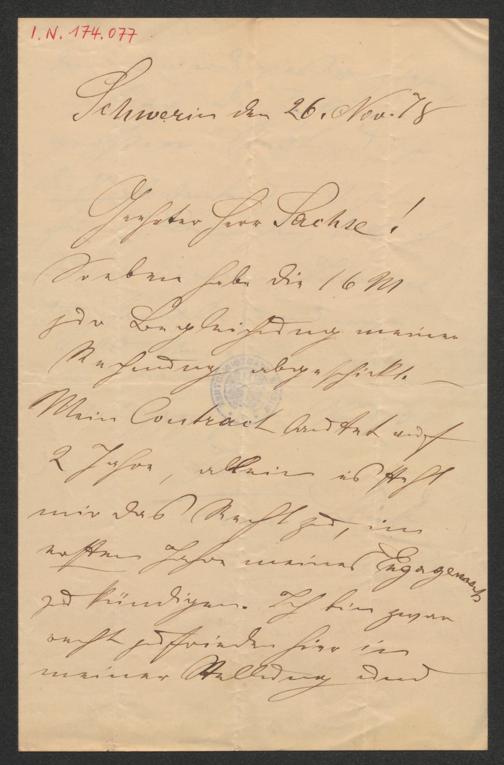 I.N. 174.077
Schwerin den 26. Nov. 78
Geehrter Herr Sachse!
Soeben habe die 16 M
zur Begleichung meiner
Rechnung abgeschickt. –
Mein Contract lautet auf
2 Jahre, allein es steht
mir das Recht zu, im
ersten Jahre meines Egagements
zu kündigen. Ich bin zwar
recht zufrieden hier in
meiner Stellung und